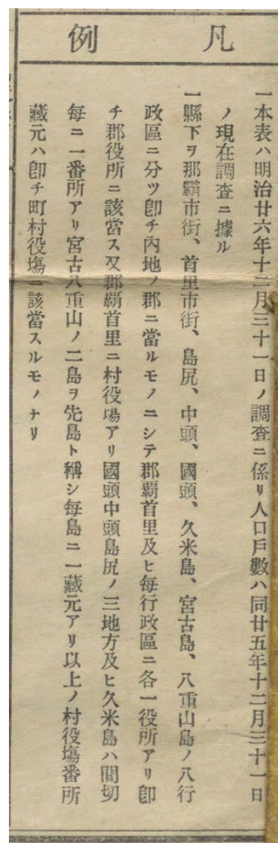 凡例
一本表ハ明治廿六年十二月三十一日ノ調査ニ係リ人口戸數ハ同廿五年十二月三十一日
ノ現在調査ニ據ル
一縣下ヲ那霸市街、首里市街、島尻、中頭、國頭、久米島、宮古島、八重山島ノ八行
政區ニ分ツ卽チ內地ノ郡ニ當ルモノニシテ郡霸首里及ヒ每行政區ニ各一役所アリ卽
チ郡役所ニ該當ス又郡霸首里ニ村役塲アリ國頭中頭島尻ノ三地方及ヒ久米島ハ間切
每ニ一番所アリ宮古八重山ノ二島ヲ先島ト稱シ每島ニ一藏元アリ以上ノ村役塲番所
藏元ハ卽チ町村役塲ニ該當スルモノナリ